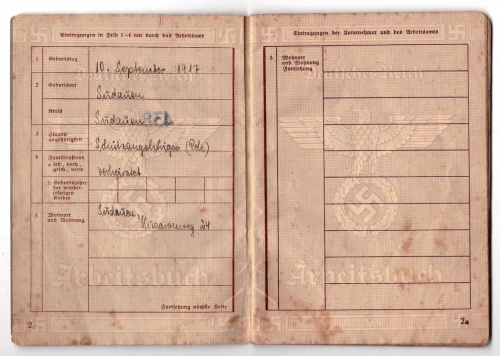 Eintragungen in Feld 1–6 nur durch das Arbeitsamt
1 Geburtstag
10. September 1917
2 Geburtsort
Sudauen
Kreis
Sudauen
3 Staats-
angehörigkeit
Schutzangehöriger (Pole)
4 Familienstand
a led., verh.,
gesch., verw.
verheiratet
b Geburtsjahre
der minder-
jährigen
Kinder
5 Wohnort
und Wohnung
Sudauen
24
Fortsetzung nächste Seite
Arbeitsbuch
2
Eintragungen der Unternehmer und des Arbeitsamts
5 Wohnort
und Wohnung
Fortsetzung
Deutsches Reich
Arbeitsbuch
2a